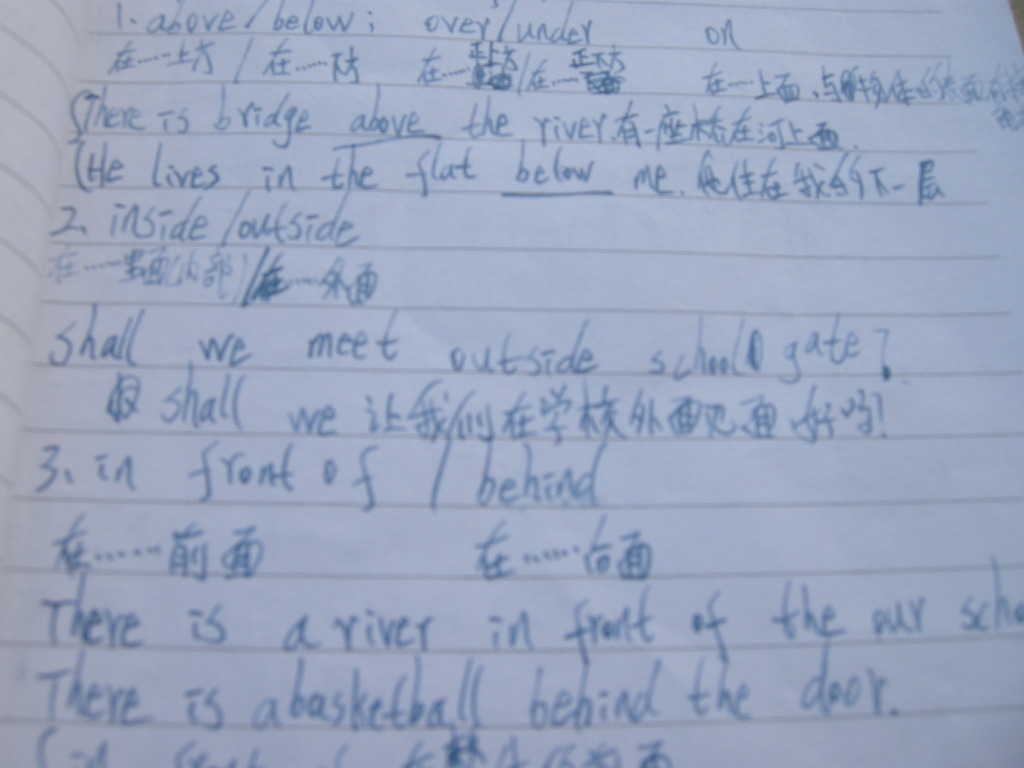 1. above/below; over/under on
在……上方 / 在……下方 在……正上方/在……正下方 在……上面,与
There is bridge above the river.有一座桥在河上面.
(He lives in the flat below me. 他住在我的下一层
2. inside/outside
在……里面(内部)/在……外面
shall we meet outside school gate?
shall we 让我们在学校外面见面好吗?
3. in front of / behind
在……前面 在……后面
There is a river in front of the our
There is a basketball behind the door.